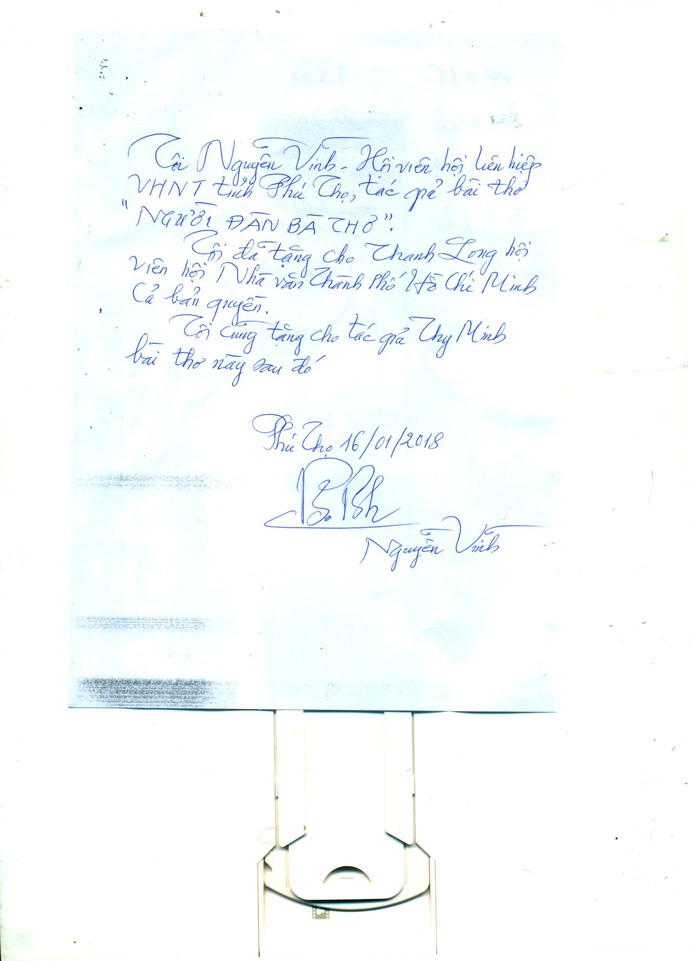 Tôi Nguyễn Vĩnh - Hội viên hội liên hiệp
VHNT tỉnh Phú Thọ, tác giả bài thơ
"NGƯỜI ĐÀN BÀ THƠ".
Tôi đã tặng cho Thanh Long hội
viên hội Nhà văn Thành Phố Hồ Chí Minh
Cả bản quyền.
Tôi cũng tặng cho tác giả Thy Minh
bài thơ này sau đó
Phú Thọ 16/01/2018
Nguyễn Vĩnh